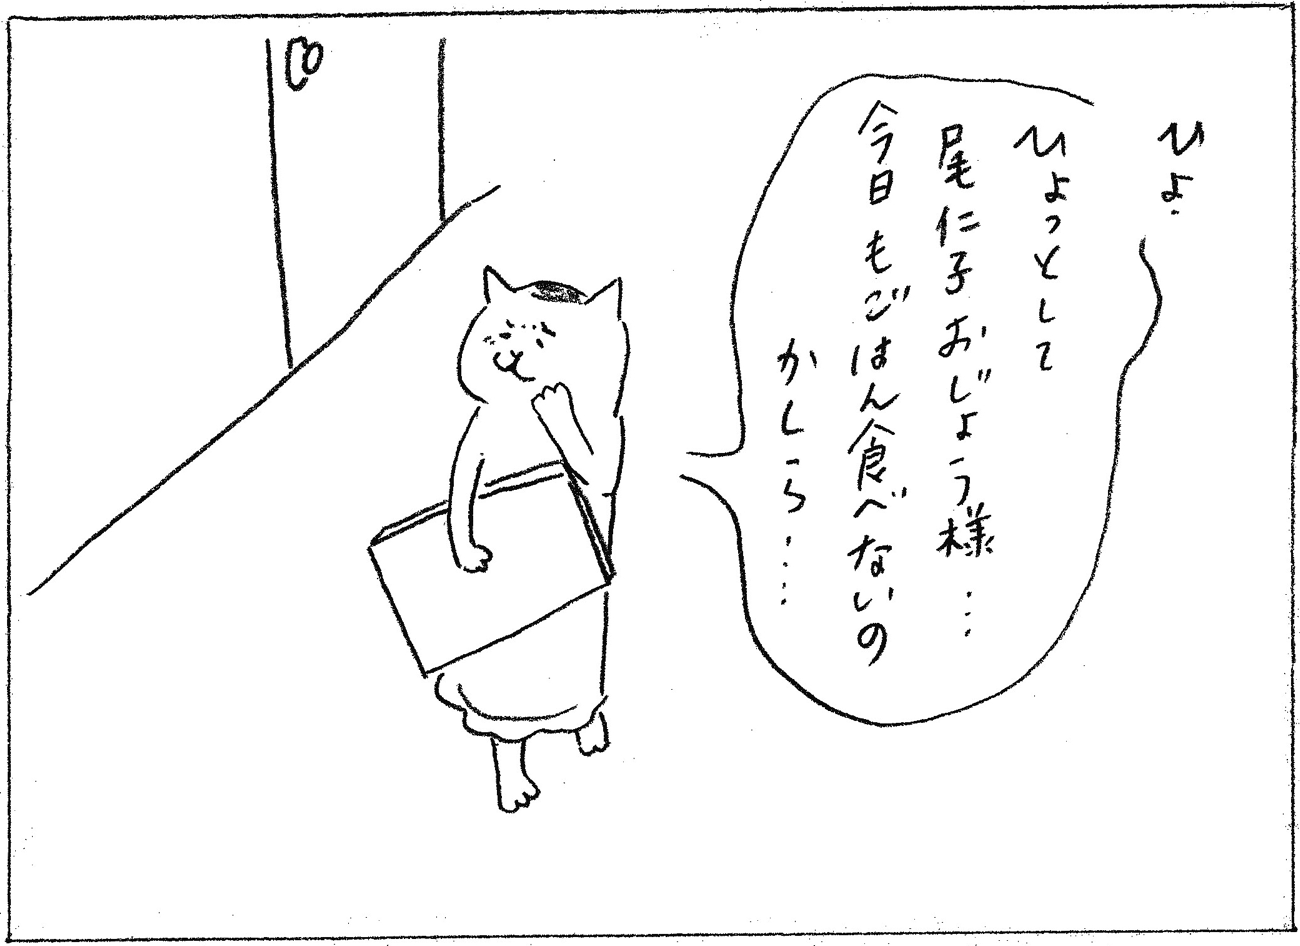 ひょ.
ひょっとして
尾仁子おじょう様…
今日もごはん食べないの
かしら……